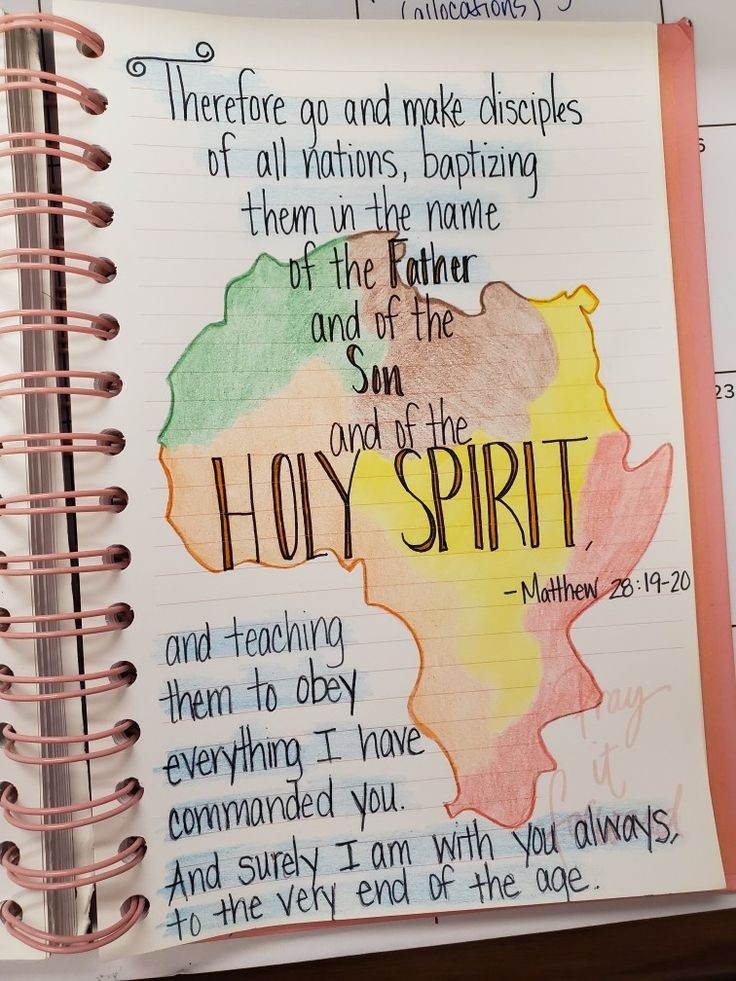 (allocations)
Therefore go and make disciples
of all nations, baptizing
them in the name
of the Father
and of the
Son
and of the
HOLY SPIRIT,
-Matthew 28:19-20
and teaching
them to obey
everything I have
commanded you.
And surely I am with you always,
to the very end of the age.
Pray
it
Forward
23